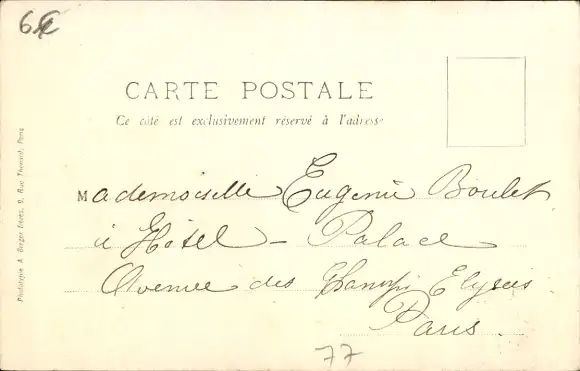 6€
CARTE POSTALE
Ce côté est exclusivement réservé à l'adresse
Mademoiselle Eugenie Boulet
à Hôtel - Palace
Avenue des Champs Elysées
Paris.
77
Phototypie A. Berger frères, 9, Rue Thénard, Paris